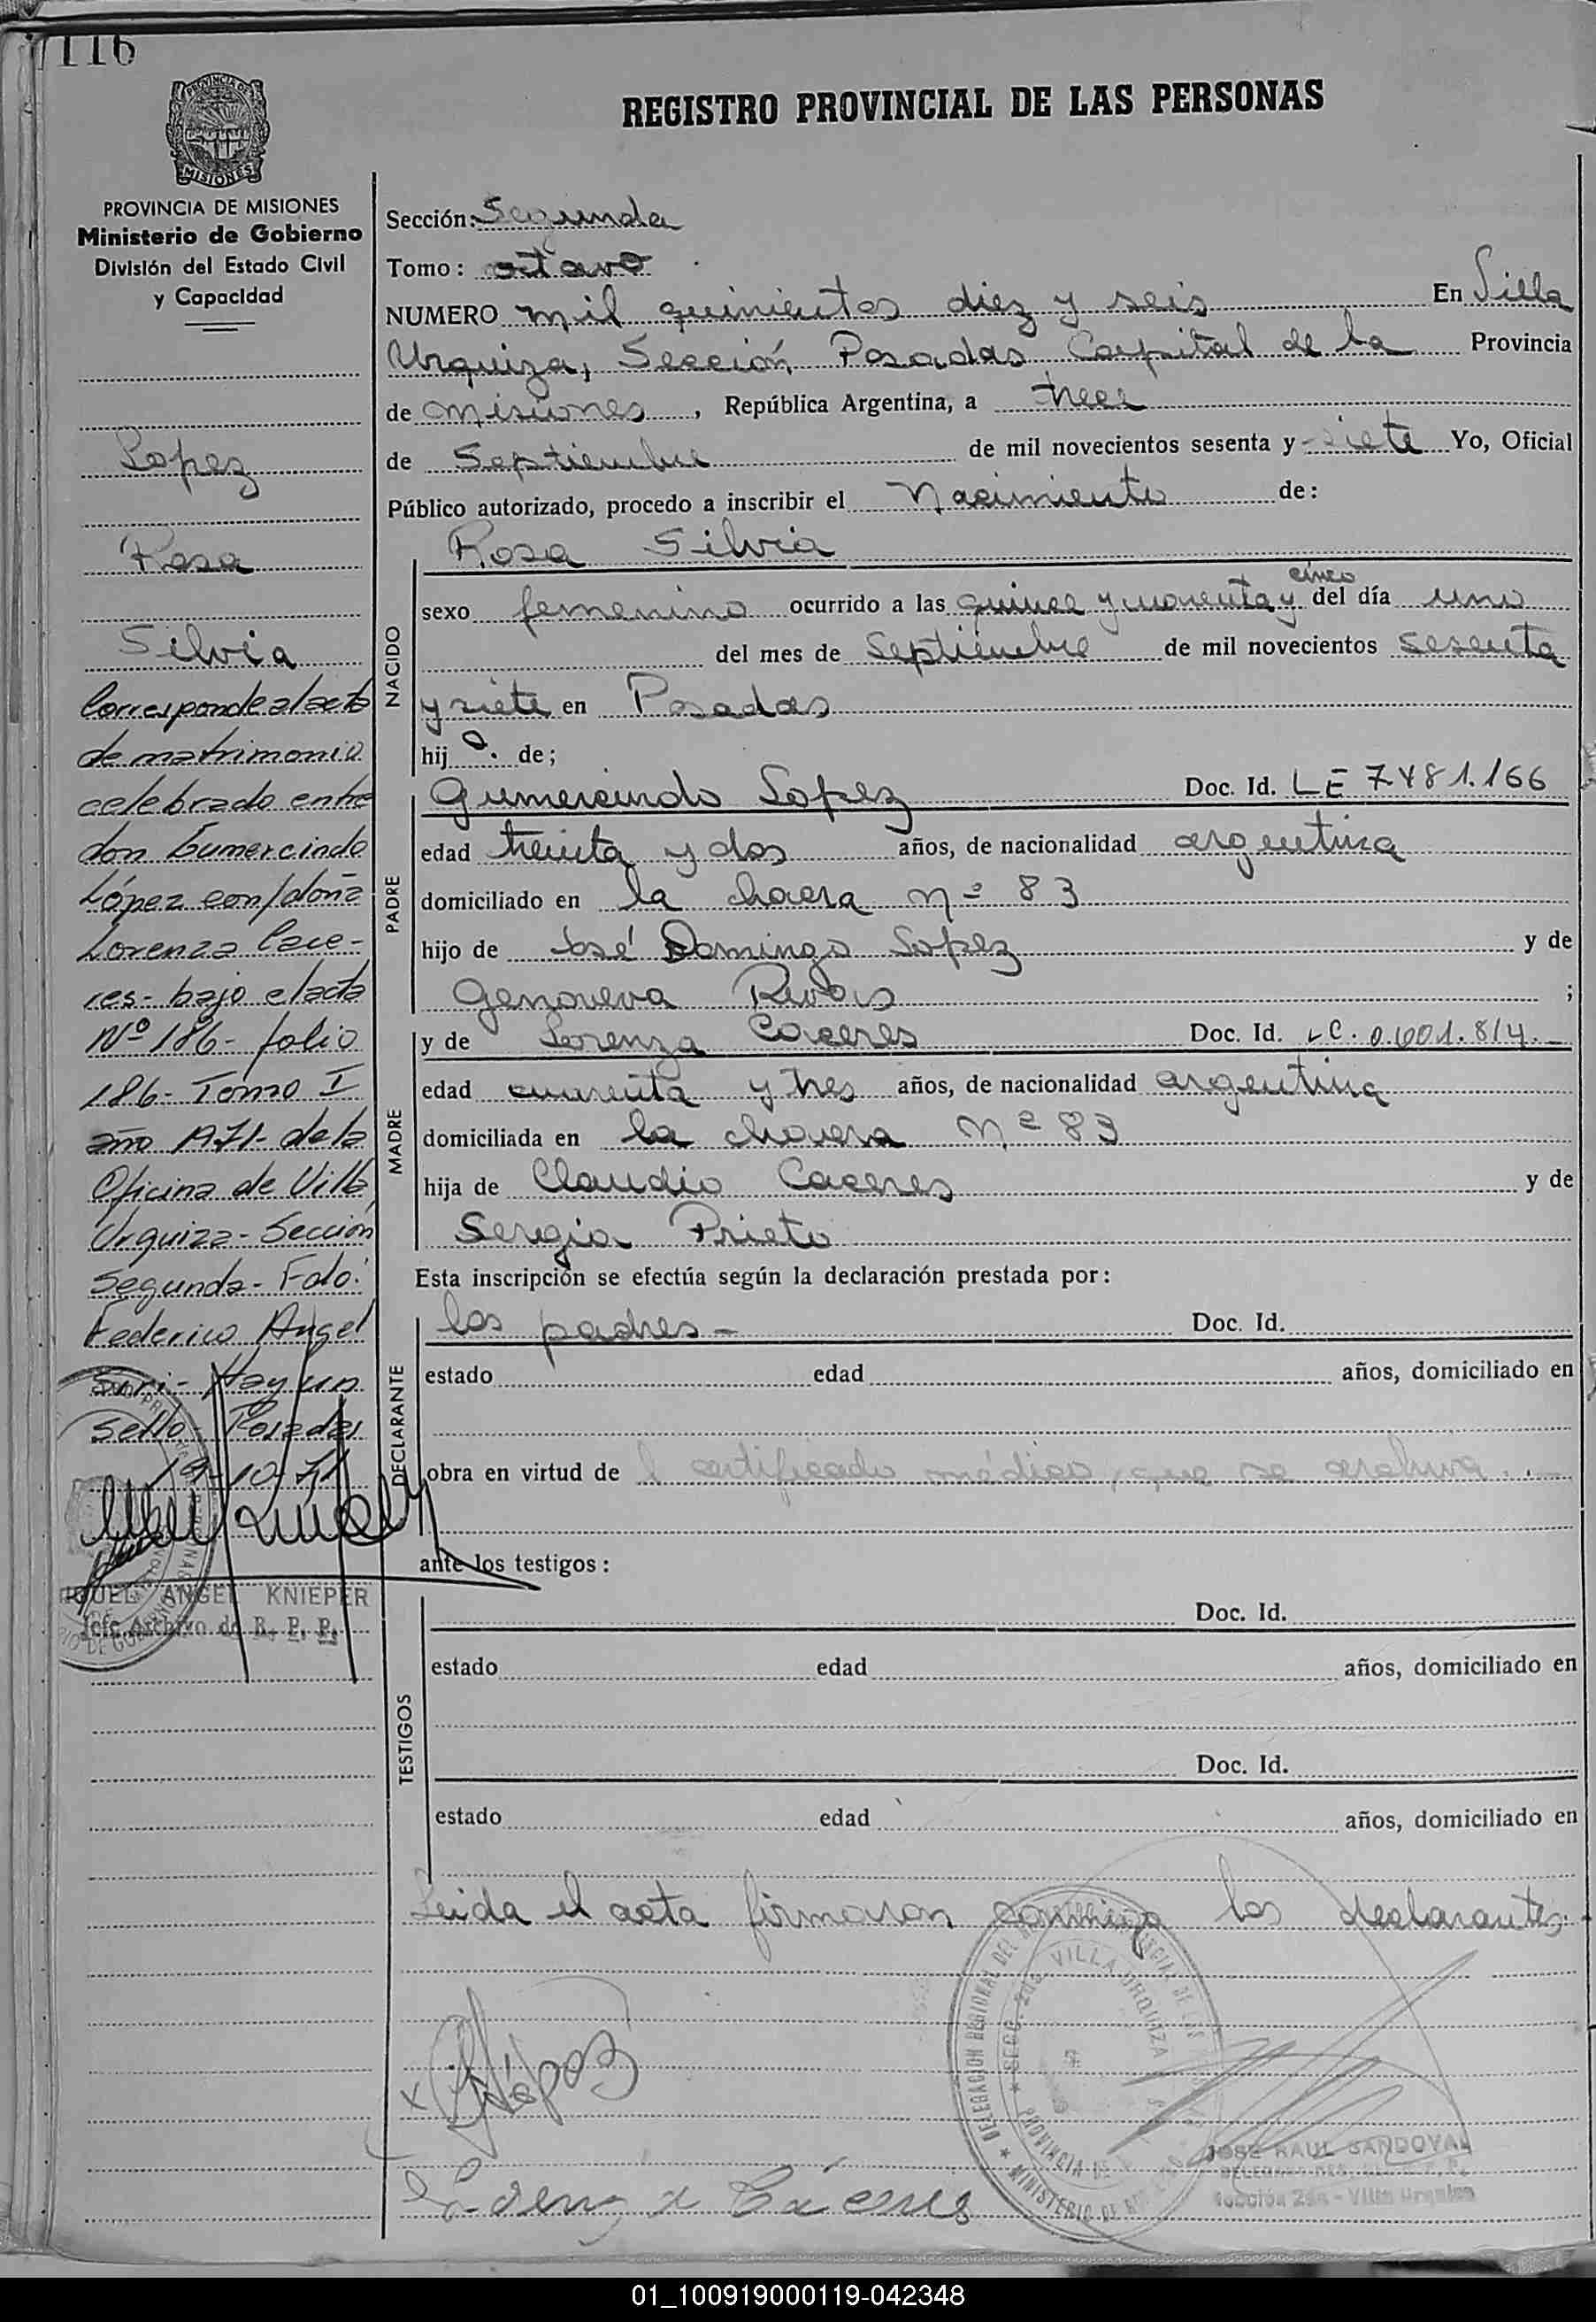 116
REGISTRO PROVINCIAL DE LAS PERSONAS
PROVINCIA DE MISIONES
PROVINCIA DE MISIONES
Ministerio de Gobierno
División del Estado Civil
y Capacidad
Lopez
Rosa
Silvia
Corresponde al acta
de matrimonio
celebrado entre
don Gumercindo
López con/doña
Lorenza Cace-
res- bajo el acta
Nº 186- folio
186- Tomo I
año 1971- de la
Oficina de Villa
Urquiza- Sección
segunda- Fdo:
Federico Angel
- Hay un
sello- Posadas
19-10-71
ANGEL KNIEPER
Jefe Archivo de R. P. P.
Sección: Segunda
Tomo: octavo
NUMERO mil quinientos diez y seis En Villa
Urquiza, Sección Posadas Capital de la Provincia
de Misiones, República Argentina, a trece
de Septiembre de mil novecientos sesenta y siete Yo, Oficial
Público autorizado, procedo a inscribir el Nacimiento de:
Rosa Silvia
NACIDO
cinco
sexo femenino ocurrido a las quince y cuarenta y del día uno
del mes de Septiembre de mil novecientos sesenta
y siete en Posadas
hij a. de;
PADRE
Gumersindo Lopez Doc. Id. LE 7481.166
edad treinta y dos años, de nacionalidad argentina
domiciliado en la chacra nº 83
hijo de José Domingo Lopez y de
Genoveva Rivas ;
MADRE
y de Lorenza Caceres Doc. Id. LC. 0.601.814.
edad cuarenta y tres años, de nacionalidad argentina
domiciliada en la chacra nº 83
hija de Claudio Caceres y de
Sergia Prieto
Esta inscripción se efectúa según la declaración prestada por:
DECLARANTE
los padres- Doc. Id.
estado edad años, domiciliado en
obra en virtud de l certificado médico, que se archiva.
ante los testigos:
TESTIGOS
Doc. Id.
estado edad años, domiciliado en
Doc. Id.
estado edad años, domiciliado en
Leida el acta firmaron conmigo los declarantes.
x López
Lorenza Cáceres
DELEGACION REGIONAL DEL
SECC. 2da. VILLA URQUIZA
PROVINCIA DE
MINISTERIO DE
JOSE RAUL SANDOVAL
Sección 2da - Villa Urquiza
01_100919000119-042348